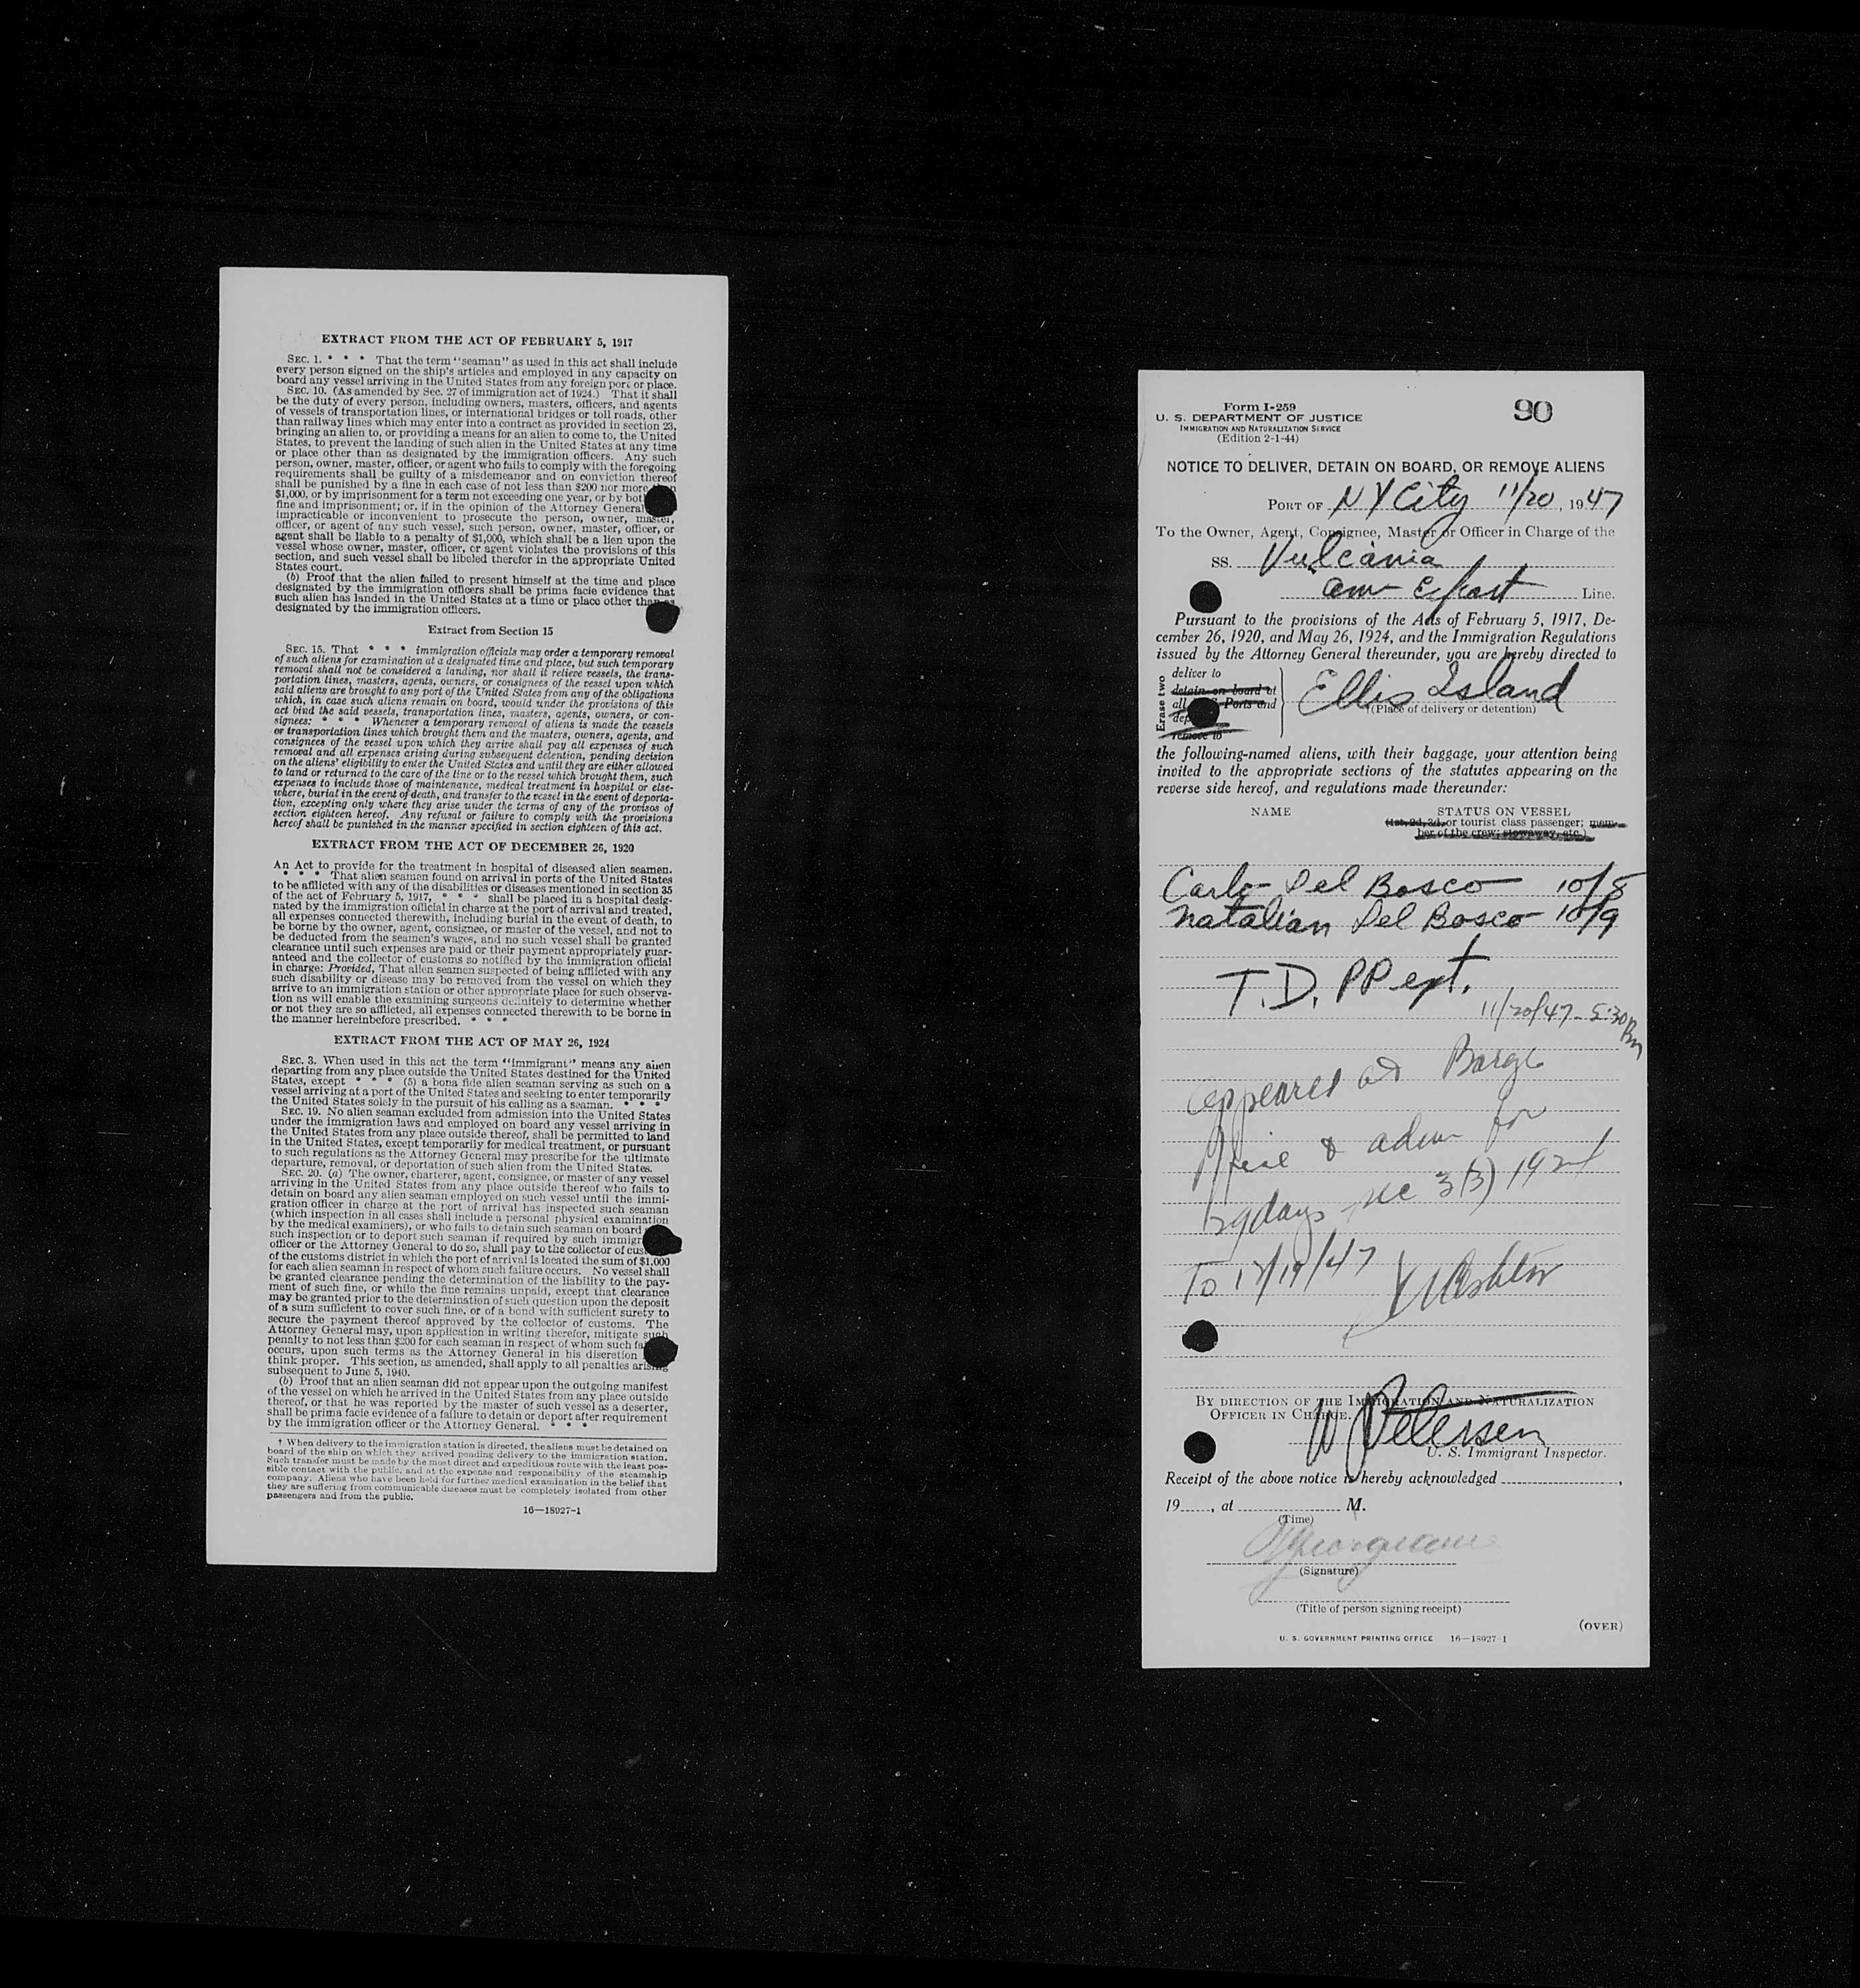 EXTRACT FROM THE ACT OF FEBRUARY 5, 1917
SEC. 1. * * * That the term "seaman" as used in this act shall include
every person signed on the ship's articles and employed in any capacity on
board any vessel arriving in the United States from any foreign port or place.
SEC. 10. (As amended by Sec. 27 of immigration act of 1924.) That it shall
be the duty of every person, including owners, masters, officers, and agents
of vessels of transportation lines, or international bridges or toll roads, other
than railway lines which may enter into a contract as provided in section 23,
bringing an alien to, or providing a means for an alien to come to, the United
States, to prevent the landing of such alien in the United States at any time
or place other than as designated by the immigration officers. Any such
person, owner, master, officer, or agent who fails to comply with the foregoing
requirements shall be guilty of a misdemeanor and on conviction thereof
shall be punished by a fine in each case of not less than $200 nor more
$1,000, or by imprisonment for a term not exceeding one year, or by
fine and imprisonment; or, if in the opinion of the Attorney General
impracticable or inconvenient to prosecute the person, owner, master,
officer, or agent of any such vessel, such person, owner, master, officer, or
agent shall be liable to a penalty of $1,000, which shall be a lien upon the
vessel whose owner, master, officer, or agent violates the provisions of this
section, and such vessel shall be libeled therefor in the appropriate United
States court.
(b) Proof that the alien failed to present himself at the time and place
designated by the immigration officers shall be prima facie evidence that
such alien has landed in the United States at a time or place other than as
designated by the immigration officers.
Extract from Section 15
SEC. 15. That * * * immigration officials may order a temporary removal
of such aliens for examination at a designated time and place, but such temporary
removal shall not be considered a landing, nor shall it relieve vessels, the trans-
portation lines, masters, agents, owners, or consignees of the vessel upon which
said aliens are brought to any port of the United States from any of the obligations
which, in case such aliens remain on board, would under the provisions of this
act bind the said vessels, transportation lines, masters, agents, owners, or con-
signees: * * * Whenever a temporary removal of aliens is made the vessels
or transportation lines which brought them and the masters, owners, agents, and
consignees of the vessel upon which they arrive shall pay all expenses of such
removal and all expenses arising during subsequent detention, pending decision
on the aliens' eligibility to enter the United States and until they are either allowed
to land or returned to the care of the line or to the vessel which brought them, such
expenses to include those of maintenance, medical treatment in hospital or else-
where, burial in the event of death, and transfer to the vessel in the event of deporta-
tion, excepting only where they arise under the terms of any of the provisos of
section eighteen hereof. Any refusal or failure to comply with the provisions
hereof shall be punished in the manner specified in section eighteen of this act.
EXTRACT FROM THE ACT OF DECEMBER 26, 1920
An Act to provide for the treatment in hospital of diseased alien seamen.
* * * * That alien seamen found on arrival in ports of the United States
to be afflicted with any of the disabilities or diseases mentioned in section 35
of the act of February 5, 1917, * * * shall be placed in a hospital desig-
nated by the immigration official in charge at the port of arrival and treated,
all expenses connected therewith, including burial in the event of death, to
be borne by the owner, agent, consignee, or master of the vessel, and not to
be deducted from the seamen's wages, and no such vessel shall be granted
clearance until such expenses are paid or their payment appropriately guar-
anteed and the collector of customs so notified by the immigration official
in charge: Provided, That alien seamen suspected of being afflicted with any
such disability or disease may be removed from the vessel on which they
arrive to an immigration station or other appropriate place for such observa-
tion as will enable the examining surgeons definitely to determine whether
or not they are so afflicted, all expenses connected therewith to be borne in
the manner hereinbefore prescribed. * * *
EXTRACT FROM THE ACT OF MAY 26, 1924
SEC. 3. When used in this act the term "immigrant" means any alien
departing from any place outside the United States destined for the United
States, except * * * (5) a bona fide alien seaman serving as such on a
vessel arriving at a port of the United States and seeking to enter temporarily
the United States solely in the pursuit of his calling as a seaman. * * *
SEC. 19. No alien seaman excluded from admission into the United States
under the immigration laws and employed on board any vessel arriving in
the United States from any place outside thereof, shall be permitted to land
in the United States, except temporarily for medical treatment, or pursuant
to such regulations as the Attorney General may prescribe for the ultimate
departure, removal, or deportation of such alien from the United States.
SEC. 20. (a) The owner, charterer, agent, consignee, or master of any vessel
arriving in the United States from any place outside thereof who fails to
detain on board any alien seaman employed on such vessel until the immi-
gration officer in charge at the port of arrival has inspected such seaman
(which inspection in all cases shall include a personal physical examination
by the medical examiners), or who fails to detain such seaman on board
such inspection or to deport such seaman if required by such
officer or the Attorney General to do so, shall pay to the collector of
of the customs district in which the port of arrival is located the sum of $1,000
for each alien seaman in respect of whom such failure occurs. No vessel shall
be granted clearance pending the determination of the liability to the pay-
ment of such fine, or while the fine remains unpaid, except that clearance
may be granted prior to the determination of such question upon the deposit
of a sum sufficient to cover such fine, or of a bond with sufficient surety to
secure the payment thereof approved by the collector of customs. The
Attorney General may, upon application in writing therefor, mitigate such
penalty to not less than $200 for each seaman in respect of whom such
occurs, upon such terms as the Attorney General in his discretion
think proper. This section, as amended, shall apply to all penalties arising
subsequent to June 5, 1940.
(b) Proof that an alien seaman did not appear upon the outgoing manifest
of the vessel on which he arrived in the United States from any place outside
thereof, or that he was reported by the master of such vessel as a deserter,
shall be prima facie evidence of a failure to detain or deport after requirement
by the immigration officer or the Attorney General. * * *
† When delivery to the immigration station is directed, the aliens must be detained on
board of the ship on which they arrived pending delivery to the immigration station.
Such transfer must be made by the most direct and expeditious route with the least pos-
sible contact with the public, and at the expense and responsibility of the steamship
company. Aliens who have been held for further medical examination in the belief that
they are suffering from communicable diseases must be completely isolated from other
passengers and from the public.
16—18027-1
Form I-259
90
U. S. DEPARTMENT OF JUSTICE
IMMIGRATION AND NATURALIZATION SERVICE
(Edition 2-1-44)
NOTICE TO DELIVER, DETAIN ON BOARD, OR REMOVE ALIENS
PORT OF N Y City 11/20, 1947
To the Owner, Agent, Consignee, Master or Officer in Charge of the
SS. Vulcania
Am Export Line.
Pursuant to the provisions of the Acts of February 5, 1917, De-
cember 26, 1920, and May 26, 1924, and the Immigration Regulations
issued by the Attorney General thereunder, you are hereby directed to
Erase two
deliver to
detain on board at
all Ports and
remove to
Ellis Island
†(Place of delivery or detention)
the following-named aliens, with their baggage, your attention being
invited to the appropriate sections of the statutes appearing on the
reverse side hereof, and regulations made thereunder:
NAME STATUS ON VESSEL
(1st, 2d, 3d, or tourist class passenger; mem-
ber of the crew; stowaway, etc.)
Carlo Del Bosco 10/8
Natalian Del Bosco 10/9
T.D. PP ext.
11/20/47 - 5:30 Pm
Appeared at Barge
office & adm for
29 days sec 3(3) 1924
To 12/19/47
BY DIRECTION OF THE IMMIGRATION AND NATURALIZATION
OFFICER IN CHARGE.
W Petersen
U. S. Immigrant Inspector.
Receipt of the above notice is hereby acknowledged ,
19 , at M.
(Time)
(Signature)
(Title of person signing receipt)
(OVER)
U. S. GOVERNMENT PRINTING OFFICE 16—18027-1